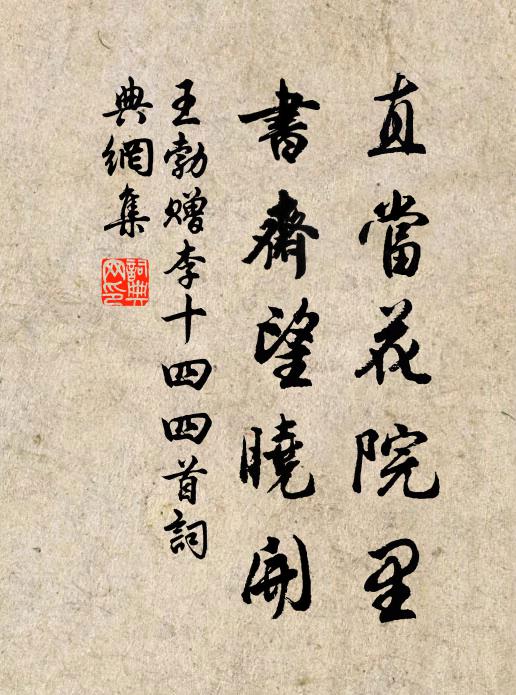 直當花院里
書齋望曉開
王勃贈李十四四首詞
典網集
詞典網印